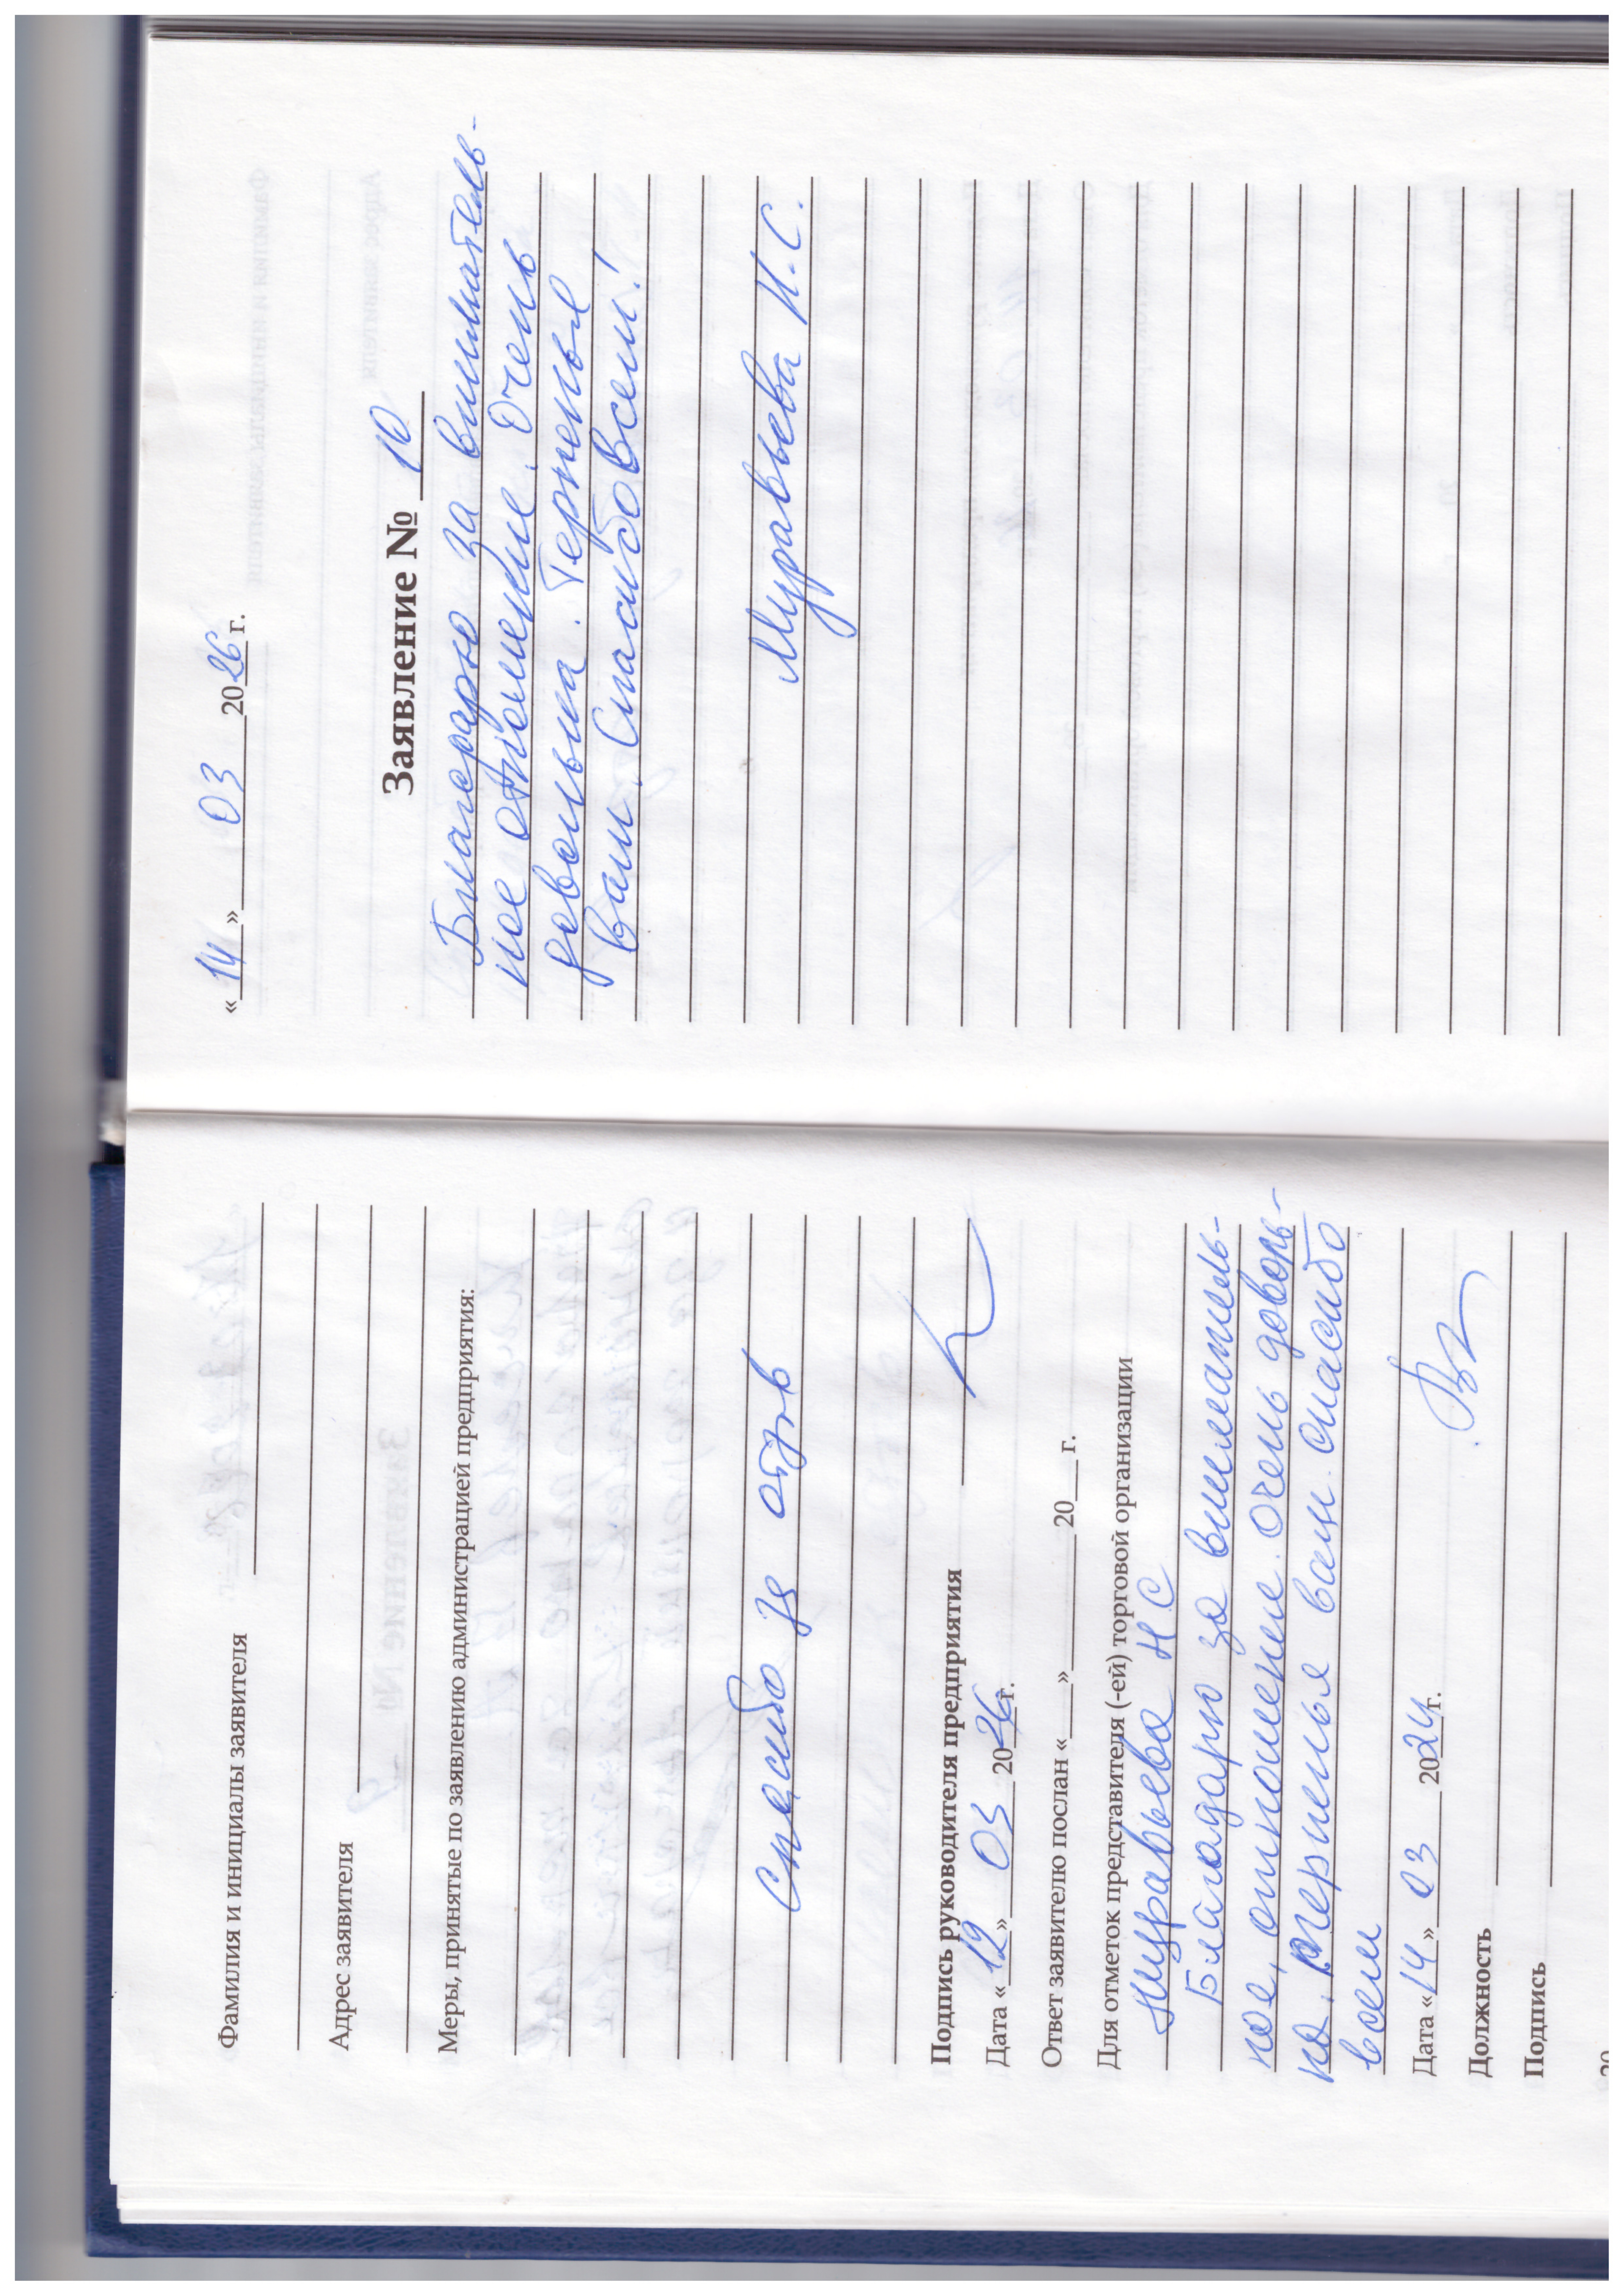 Фамилия и инициалы заявителя
Адрес заявителя
Меры, принятые по заявлению администрацией предприятия:
Спасибо за отзыв
Подпись руководителя предприятия
Дата « 12 » 03 2026 г.
Ответ заявителю послан « » 20 г.
Для отметок представителя (-ей) торговой организации
Муравьева Н С
Благодарю за вниматель-
ное, отношение. Очень доволь-
на. терпенья вам. спасибо
всем
Дата « 14 » 03 2024 г.
Должность
Подпись
« 14 » 03 2026 г.
Заявление № 10
Благодарю за вниматель-
ное отношение. Очень
довольна. Терпенья
вам. Спасибо всем!
Муравьева Н.С.